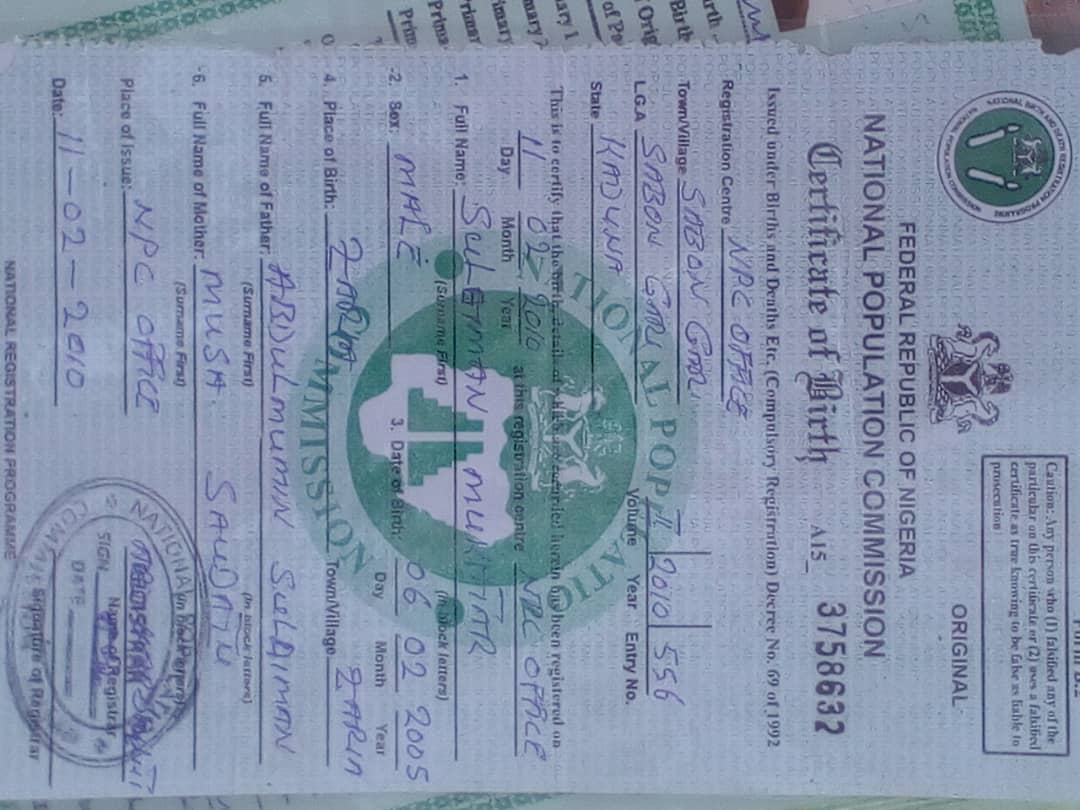 Form B.2
Caution: Any person who (1) falsified any of the
particular on this certificate or (2) uses a falsified
certificate as true knowing to be false is liable to
prosecution
ORIGINAL
FEDERAL REPUBLIC OF NIGERIA
NATIONAL POPULATION COMMISSION
Certificate of Birth A15_ 3758632
Issued under Births and Deaths Etc. (Compulsory Registration) Decree No. 69 of 1992
Registration Centre NPC OFFICE
Town/Village SABON GARI
L.G.A SABON GARI
State KADUNA
I 2010 556
Volume Year Entry No.
This is to certify that the birth, details of which are recorded herein has been registered on
11 02 2010 at this registration centre NPC OFFICE
Day Month Year
1. Full Name: SULEIMAN MUKHTAR
(Surname First) (In block letters)
2. Sex: MALE 3. Date of Birth: 06 02 2005
Day Month Year
4. Place of Birth: ZARIA Town/Village ZARIA
5. Full Name of Father: ABDULMUMIN SULAIMAN
(Surname First) (In block letters)
6. Full Name of Mother: MUSA SAUDATU
(Surname First)
Place of Issue: NPC OFFICE
Name of Registrar
Date: 11-02-2010
Signature of Registrar
NATIONAL REGISTRATION PROGRAMME
NATIONAL
SIGN
DATE